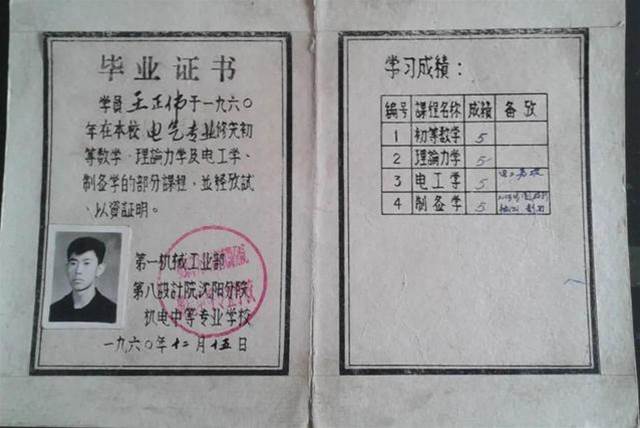 毕业证书
学员王正伟于一九六〇
年在本校电气专业修完初
等数学、理論力学及电工学、
制备学的部分課程，並经攷試
以資証明。
第一机械工业部
第八設計院沈阳分院
机电中等专业学校
一九六〇年十二月十五日
学习成績：
編号 課程名称 成績 备攷
1 初等数学 5
2 理論力学 5
3 电工学 5
4 制备学 5